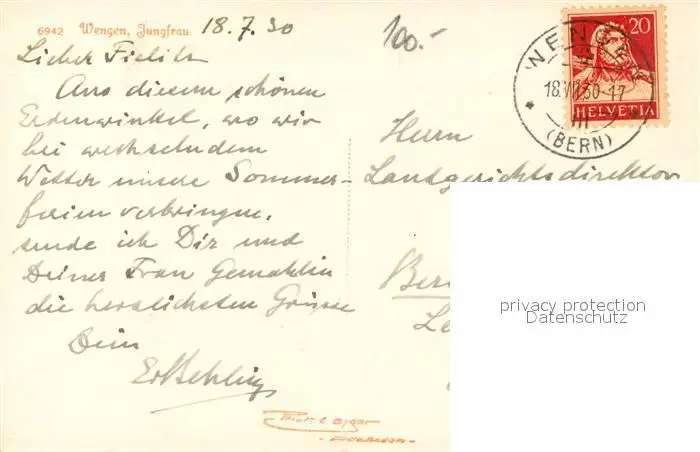 6942 Wengen, Jungfrau.
18.7.30
100.-
Lieber Fielitz
Aus diesem schönen
Erdenwinkel, wo wir
bei wechselndem
Wetter unsere Sommer-
ferien verbringen,
sende ich Dir und
Deiner Frau Gemahlin
die herzlichsten Grüsse
Dein
20
HELVETIA
WENGEN
18.VII.30-17
(BERN)
Herrn
Landgerichtsdirektor
privacy protection
Datenschutz